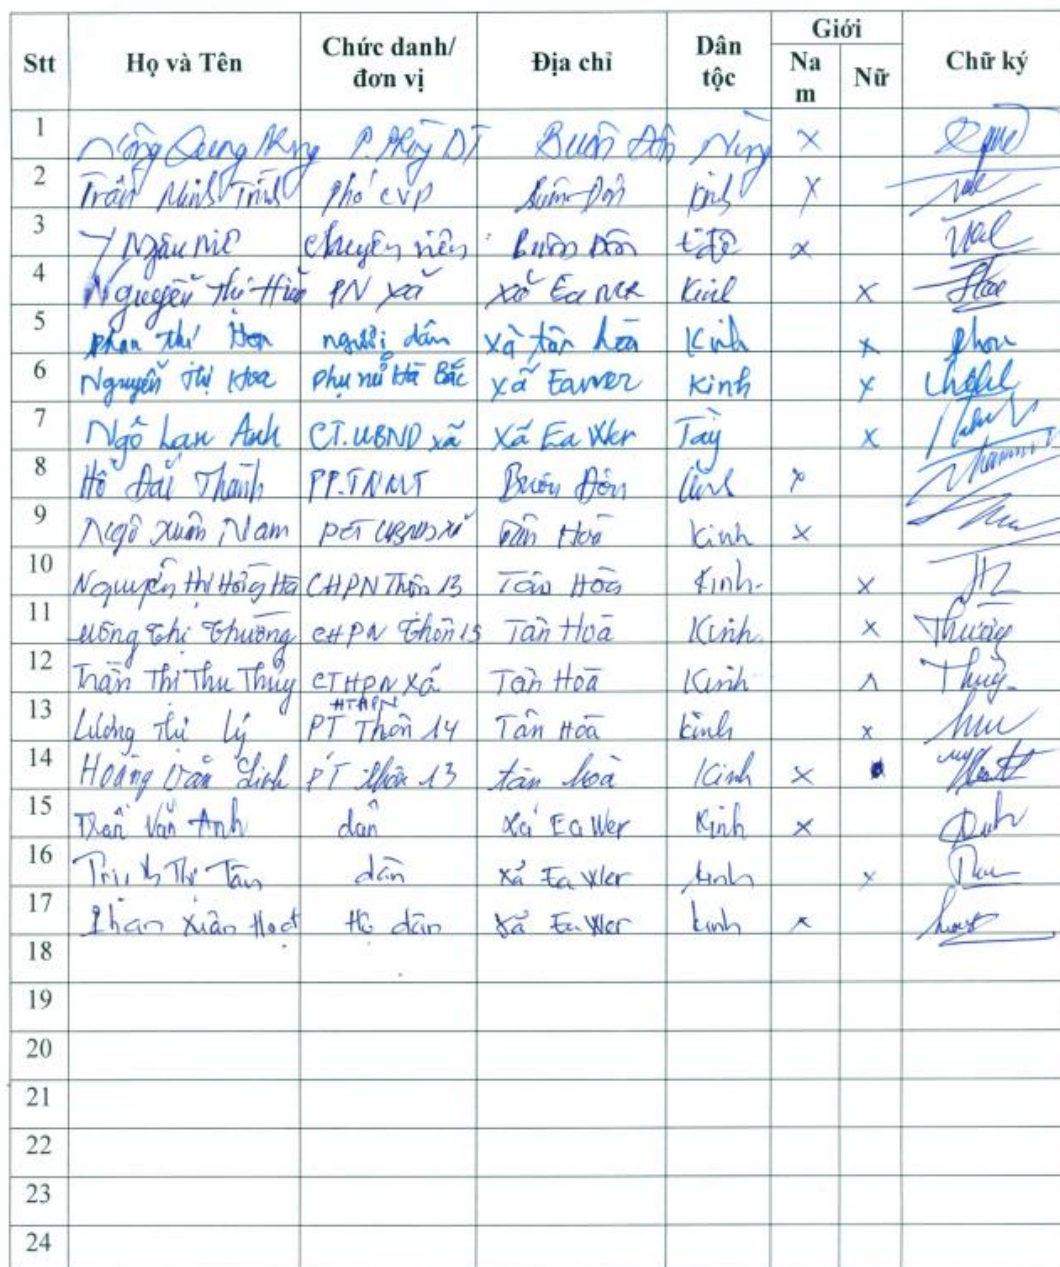 Stt Họ và Tên Chức danh/ đơn vị Địa chỉ Dân tộc Giới Nam Nữ Chữ ký
1 Nông Quang P. Phòng DT Buôn Đôn Nùng x
2 Trần Minh Phó CVP Buôn Đôn Kinh x
3 Y Ngâu Niê Chuyên viên Buôn Đôn Êđê x
4 Nguyễn Thị Hiền PN xã xã Ea Wer Kinh x
5 Phan Thị người dân xã tân hoà Kinh x
6 Nguyễn Thị Hoa phụ nữ Hà Bắc xã Eawer Kinh x
7 Ngô Lan Anh CT.UBND xã Xã Ea Wer Tày x
8 Hồ Đại Thành PP.TNMT Buôn Đôn Kinh x
9 Ngô Xuân Nam PCT UBND xã Tân Hoà Kinh x
10 Nguyễn Thị Hồng Hà CHPN Thôn 13 Tân Hòa Kinh. x
11 Thị Thương CHPN Thôn 15 Tân Hoà Kinh. x Thương
12 Trần Thị Thu Thủy CTHPN Xã Tân Hoà Kinh x Thủy
13 Lương Thị Lý PT HTHPN Thôn 14 Tân Hoà Kinh x
14 Hoàng Văn Linh PT thôn 13 tân hoà Kinh x
15 Trần Văn Anh dân Xã Ea Wer Kinh x
16 Trịnh Thị Tân dân Xã Ea Wer kinh x
17 Phan Xuân Hoạt Hộ dân Xã Ea Wer Kinh x
18
19
20
21
22
23
24